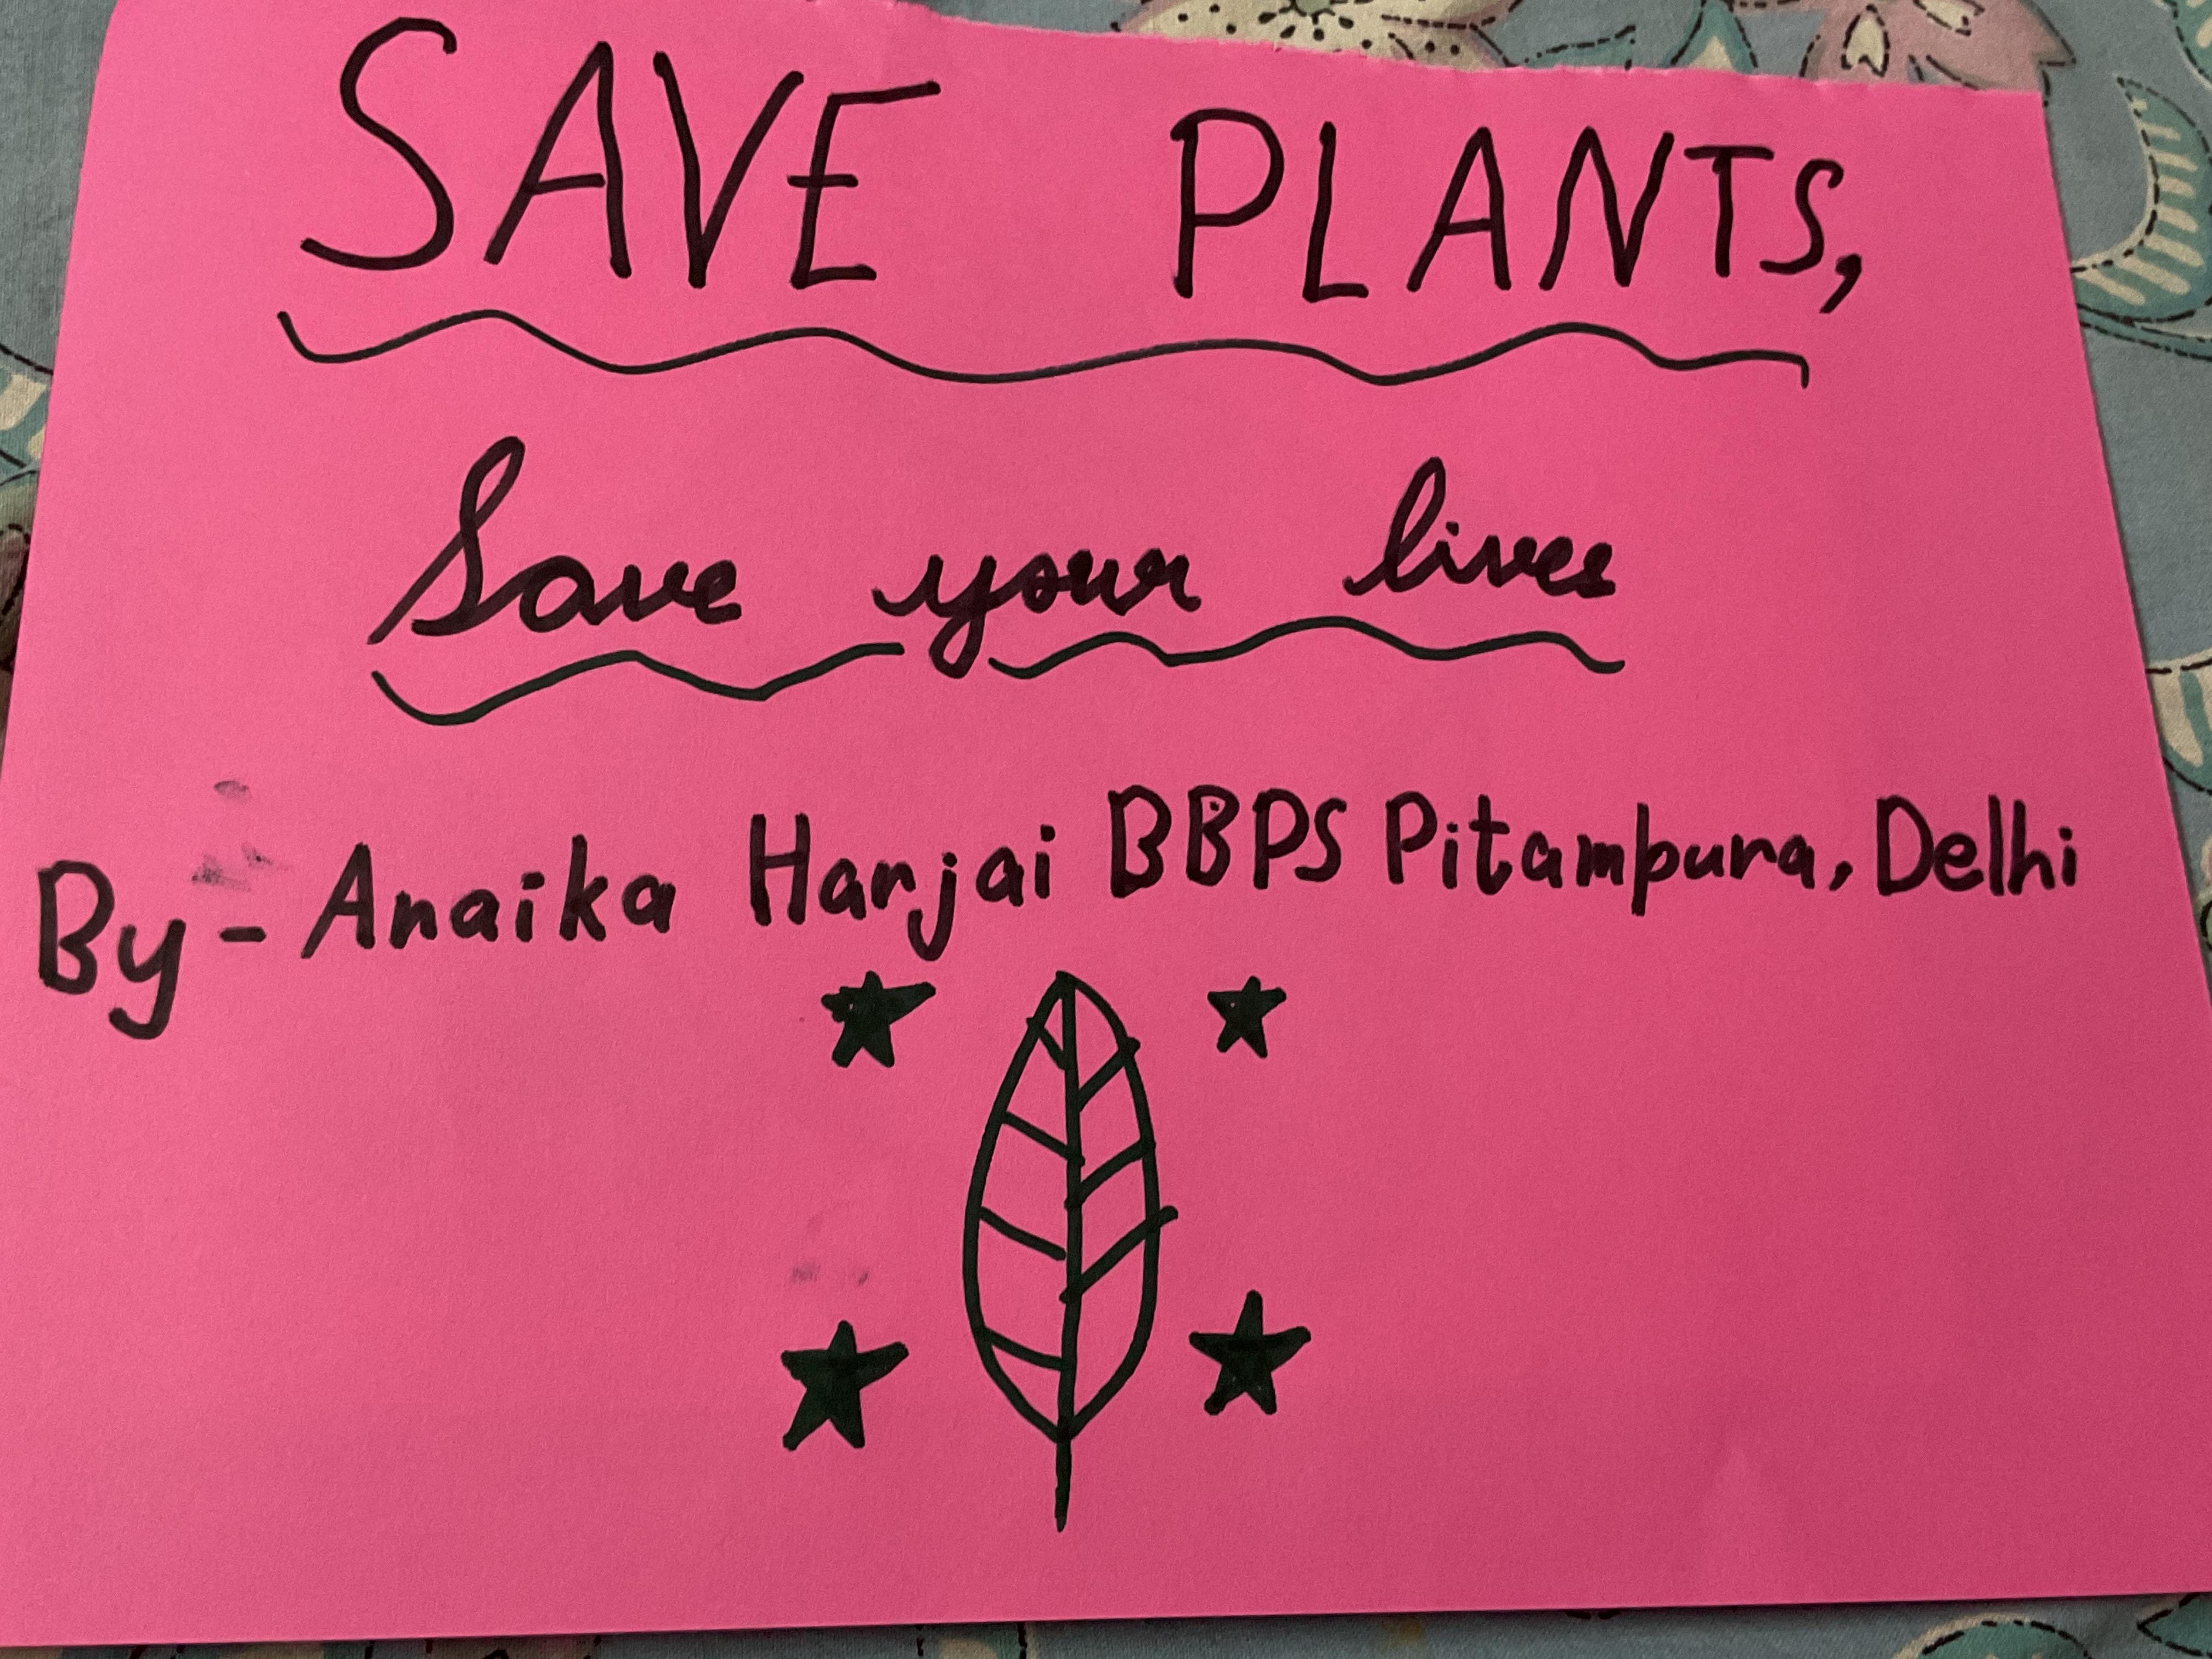 SAVE PLANTS,
Save your lives
By - Anaika Harjai BBPS Pitampura, Delhi